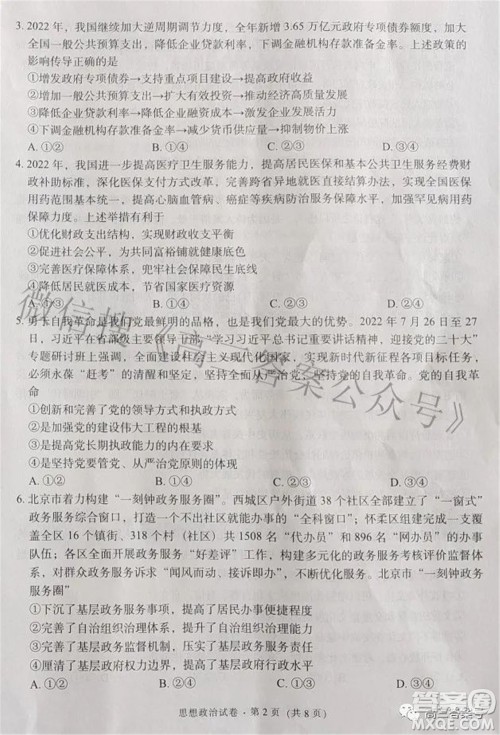 3. 2022 年，我国继续加大逆周期调节力度，全年新增 3.65 万亿元政府专项债券额度，加大
全国一般公共预算支出，降低企业贷款利率，下调金融机构存款准备金率。上述政策的
影响传导正确的是
①增发政府专项债券→支持重点项目建设→提高政府收益
②增加一般公共预算支出→扩大有效投资→推动经济高质量发展
③降低企业贷款利率→降低企业融资成本→激发企业发展活力
④下调金融机构存款准备金率→减少货币供应量→抑制物价上涨
A. ①③ B. ①④ C. ②③ D. ②④
4. 2022 年，我国进一步提高医疗卫生服务能力，提高居民医保和基本公共卫生服务经费财
政补助标准，深化医保支付方式改革，完善跨省异地就医直接结算办法，实现全国医保
用药范围基本统一，提高心脑血管病、癌症等疾病防治服务保障水平，加强罕见病用药
保障。上述举措有利于
①优化财政支出结构，实现财政收支平衡
②促进社会公平，为共同富裕铺就健康底色
③完善医疗保障体系，兜牢社会保障底线
④降低居民医保成本，节省国家医疗资源
A. ①② B. ①④ C. ②③ D. ③④
5. 勇于自我革命是我们党最鲜明的品格，也是我们党最大的优势。2022 年 7 月 26 日至 27
日，习近平在省部级主要领导干部“学习习近平总书记重要讲话精神，迎接党的二十大”
专题研讨班上强调，全面建设社会主义现代化国家，实现新时代新征程各项目标任务，
必须永葆“赶考”的清醒和坚定，坚持全面从严治党，坚持党的自我革命。党的自我革
命
①创新和完善了党的领导方式和执政方式
②是加强党的建设伟大工程的根基
③是提高党长期执政能力的内在要求
④是坚持党要管党、从严治党的现实体现
A. ①② B. ①④ C. ②③ D. ③④
6. 北京市着力构建“一刻钟政务服务圈”。西城区户外街道 38 个社区全部建立了“一窗式”
政务服务综合窗口，打造一个不出社区就能办事的“全科窗口”；怀柔区组织发展覆盖
全区 16 个镇街、318 个村（社区）共 1508 名“代办员”和 896 名“网办员”的办事
队伍；各区全面开展政务服务“好差评”工作，构建多元化的政务服务考核评价监督体
系，对群众政务服务诉求“闻风而动、接诉即办”，不断优化服务。北京市“一刻钟政务
服务圈”
①下沉了基层政务服务事项，提高了居民办事便捷程度
②完善了自治组织治理体系，提升了自治组织治理水平
③完善了基层政务监督机制，压实了基层政务服务责任
④厘清了基层政府权力边界，提高了基层政府行政能力
A. ①② B. ①③ C. ②④ D. ③④
思想政治试卷 - 第 2 页 （共 8 页）
微信搜《高三答案公众号》